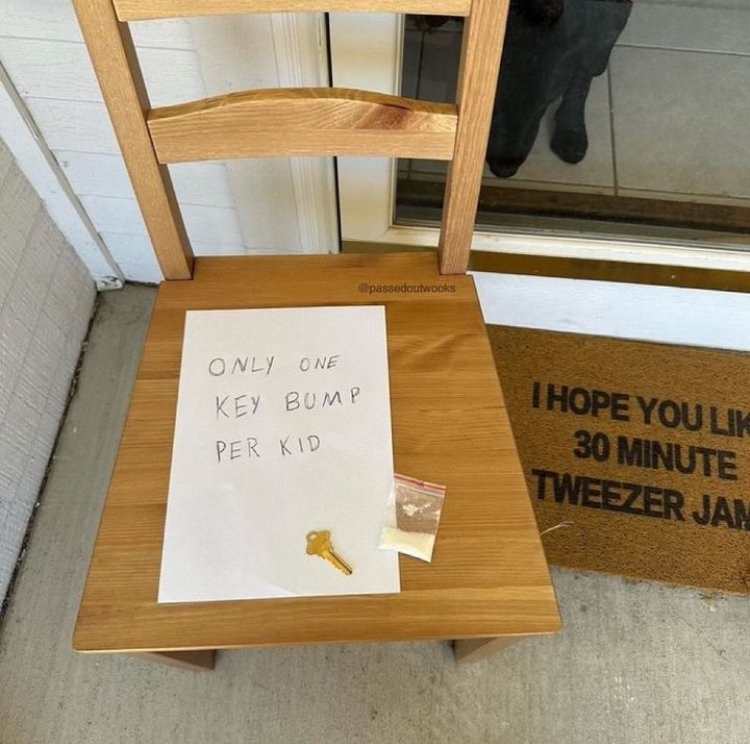 @passedoutwooks
ONLY ONE
KEY BUMP
PER KID
I HOPE YOU LIK
30 MINUTE
TWEEZER JAM